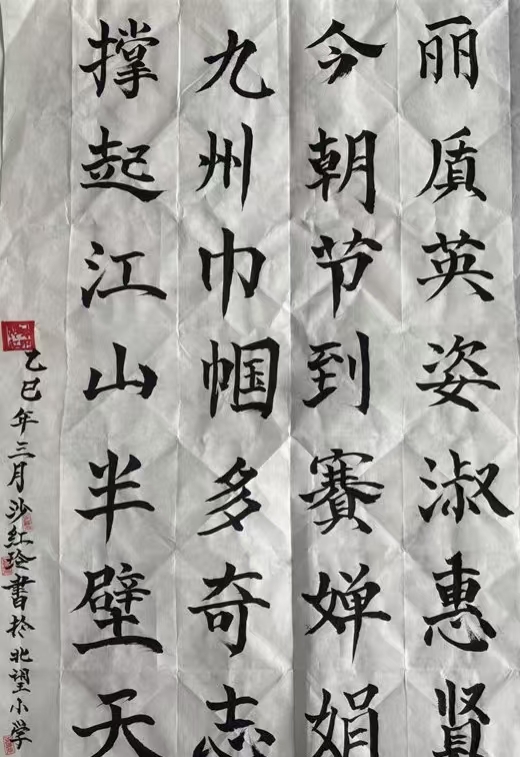 丽质英姿淑惠贤
今朝节到赛婵娟
九州巾帼多奇志
撑起江山半壁天
乙巳年三月沙红玲书於北望小学